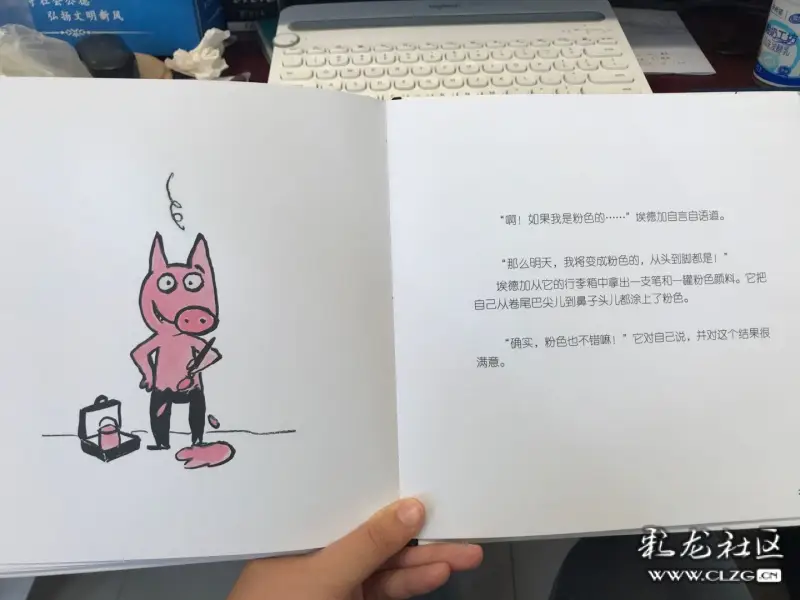 弘扬文明新风
logitech
“啊！如果我是粉色的……”埃德加自言自语道。
“那么明天，我将变成粉色的，从头到脚都是！”
埃德加从它的行李箱中拿出一支笔和一罐粉色颜料。它把
自己从卷尾巴尖儿到鼻子头儿都涂上了粉色。
“确实，粉色也不错嘛！”它对自己说，并对这个结果很
满意。
彩龙社区
WWW.CLZG.CN